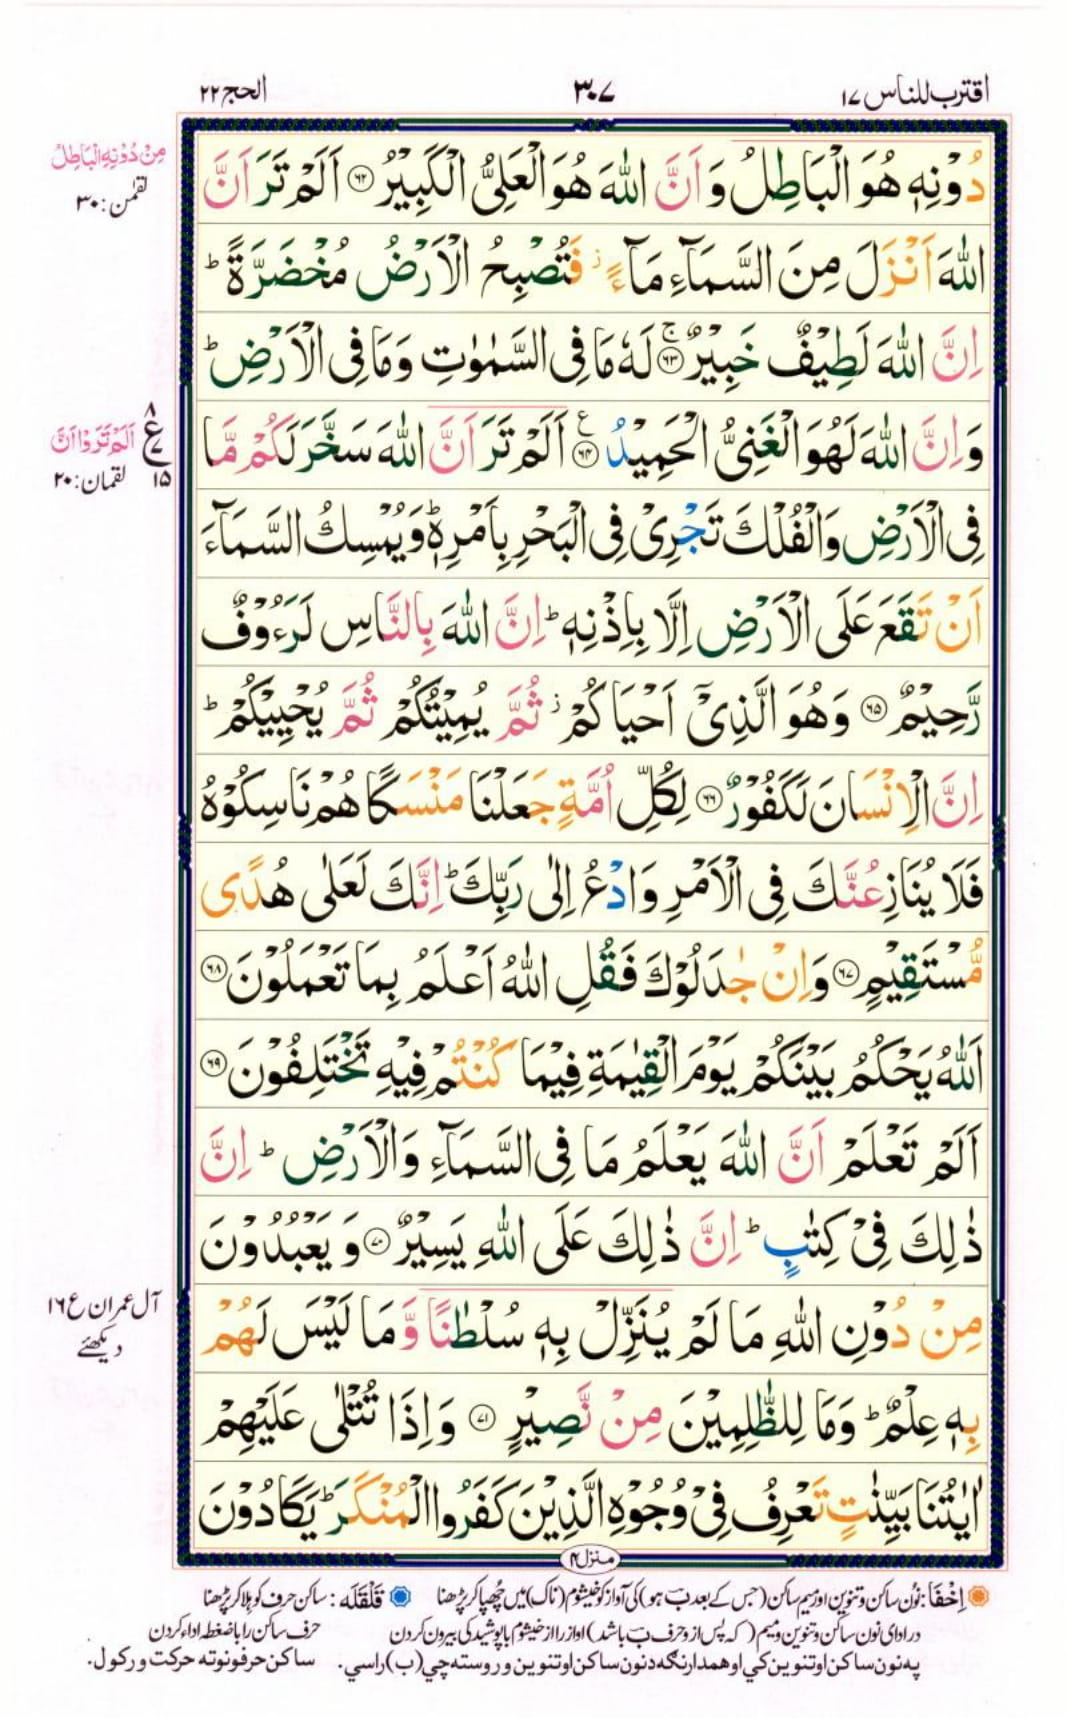 اقترب للناس ١٧
٣٠٧
الحج ٢٢
دُوْنِهٖ هُوَ الْبَاطِلُ وَ اَنَّ اللّٰهَ هُوَ الْعَلِیُّ الْكَبِیْرُ ۝٦٢ اَلَمْ تَرَ اَنَّ
مِنْ دُوْنِهِ الْبَاطِلُ
لقمٰن : ٣٠
اللّٰهَ اَنْزَلَ مِنَ السَّمَآءِ مَآءً ؗ فَتُصْبِحُ الْاَرْضُ مُخْضَرَّةً ؕ
اِنَّ اللّٰهَ لَطِیْفٌ خَبِیْرٌ ۝٦٣ۚ لَهٗ مَا فِی السَّمٰوٰتِ وَمَا فِی الْاَرْضِ ؕ
وَاِنَّ اللّٰهَ لَهُوَ الْغَنِیُّ الْحَمِیْدُ ۝٦٤ اَلَمْ تَرَ اَنَّ اللّٰهَ سَخَّرَ لَكُمْ مَّا
٨ ع ٧ ١٥
اَلَمْ تَرَوْا اَنَّ
لقمان : ٢٠
فِی الْاَرْضِ وَالْفُلْكَ تَجْرِیْ فِی الْبَحْرِ بِاَمْرِهٖ ؕ وَیُمْسِكُ السَّمَآءَ
اَنْ تَقَعَ عَلَی الْاَرْضِ اِلَّا بِاِذْنِهٖ ؕ اِنَّ اللّٰهَ بِالنَّاسِ لَرَءُوْفٌ
رَّحِیْمٌ ۝٦٥ وَهُوَ الَّذِیْۤ اَحْیَاكُمْ ؗ ثُمَّ یُمِیْتُكُمْ ثُمَّ یُحْیِیْكُمْ ؕ
اِنَّ الْاِنْسَانَ لَكَفُوْرٌ ۝٦٦ لِكُلِّ اُمَّةٍ جَعَلْنَا مَنْسَكًا هُمْ نَاسِكُوْهُ
فَلَا یُنَازِعُنَّكَ فِی الْاَمْرِ وَادْعُ اِلٰی رَبِّكَ ؕ اِنَّكَ لَعَلٰی هُدًی
مُّسْتَقِیْمٍ ۝٦٧ وَاِنْ جٰدَلُوْكَ فَقُلِ اللّٰهُ اَعْلَمُ بِمَا تَعْمَلُوْنَ ۝٦٨
اَللّٰهُ یَحْكُمُ بَیْنَكُمْ یَوْمَ الْقِیٰمَةِ فِیْمَا كُنْتُمْ فِیْهِ تَخْتَلِفُوْنَ ۝٦٩
اَلَمْ تَعْلَمْ اَنَّ اللّٰهَ یَعْلَمُ مَا فِی السَّمَآءِ وَالْاَرْضِ ؕ اِنَّ
ذٰلِكَ فِیْ كِتٰبٍ ؕ اِنَّ ذٰلِكَ عَلَی اللّٰهِ یَسِیْرٌ ۝٧٠ وَ یَعْبُدُوْنَ
مِنْ دُوْنِ اللّٰهِ مَا لَمْ یُنَزِّلْ بِهٖ سُلْطٰنًا وَّ مَا لَیْسَ لَهُمْ
آل عمران ع ١٦
دیکھئے
بِهٖ عِلْمٌ ؕ وَمَا لِلظّٰلِمِیْنَ مِنْ نَّصِیْرٍ ۝٧١ وَاِذَا تُتْلٰی عَلَیْهِمْ
اٰیٰتُنَا بَیِّنٰتٍ تَعْرِفُ فِیْ وُجُوْهِ الَّذِیْنَ كَفَرُوا الْمُنْكَرَ ؕ یَكَادُوْنَ
منزل ٤
اِخْفَا : نُون ساکن و تنوین اور میم ساکن (جس کے بعد ب ہو) کی آواز کو خیشوم (ناک) میں چُھپا کر پڑھنا قَلْقَلَه : ساکن حرف کو ہلا کر پڑھنا
در ادای نون ساکن و تنوین و میم (که پس از و حرف ب باشد) اواز را از خیشوم با پوشیدگی بیرون کردن حرف ساکن را با ضغطه اداء کردن
په نون ساکن او تنوین کې او همدارنګه د نون ساکن او تنوین وروسته چي (ب) راسي. ساکن حرفونو ته حرکت ورکول.